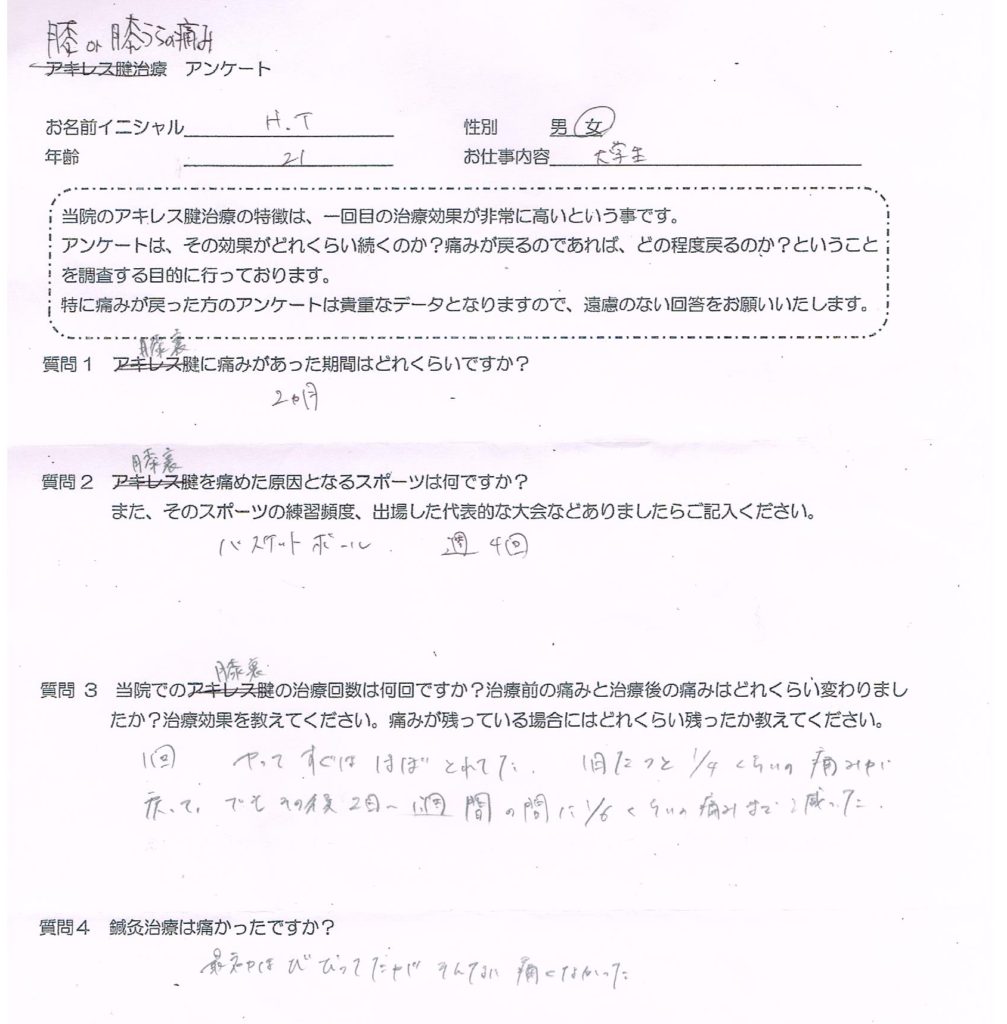 膝 or 膝うらの痛み
アキレス腱治療 アンケート
お名前イニシャル H.T 性別 男 女
年齢 21 お仕事内容 大学生
当院のアキレス腱治療の特徴は、一回目の治療効果が非常に高いという事です。
アンケートは、その効果がどれくらい続くのか？痛みが戻るのであれば、どの程度戻るのか？ということ
を調査する目的に行っております。
特に痛みが戻った方のアンケートは貴重なデータとなりますので、遠慮のない回答をお願いいたします。
膝裏
質問１ アキレス腱に痛みがあった期間はどれくらいですか？
2ヵ月
膝裏
質問２ アキレス腱を痛めた原因となるスポーツは何ですか？
また、そのスポーツの練習頻度、出場した代表的な大会などありましたらご記入ください。
バスケットボール 週4回
膝裏
質問 ３ 当院でのアキレス腱の治療回数は何回ですか？治療前の痛みと治療後の痛みはどれくらい変わりまし
たか？治療効果を教えてください。痛みが残っている場合にはどれくらい残ったか教えてください。
1回 やってすぐは ほぼ とれてた. 1日たつと 1/4 くらいの 痛みが
戻って, でも その後 2日〜1週間の間に 1/6 くらいの痛みまで 減った.
質問４ 鍼灸治療は痛かったですか？
最初は びびってたが そんなに 痛くなかった